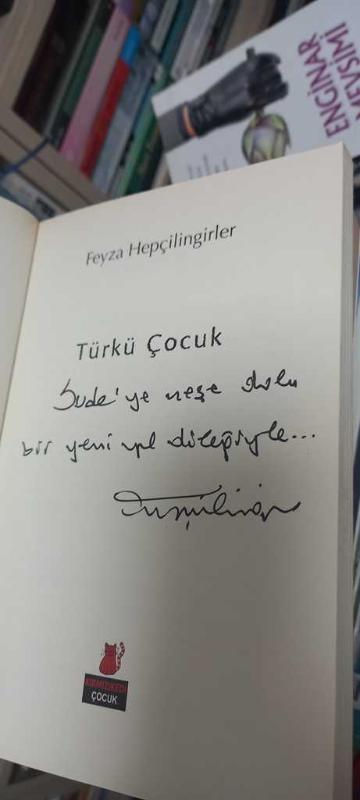 ENGİNAR
MEVSİMİ
Feyza Hepçilingirler
Türkü Çocuk
Sude'ye neşe dolu
bir yeni yıl dileğiyle...
KIRMIZIKEDİ
ÇOCUK